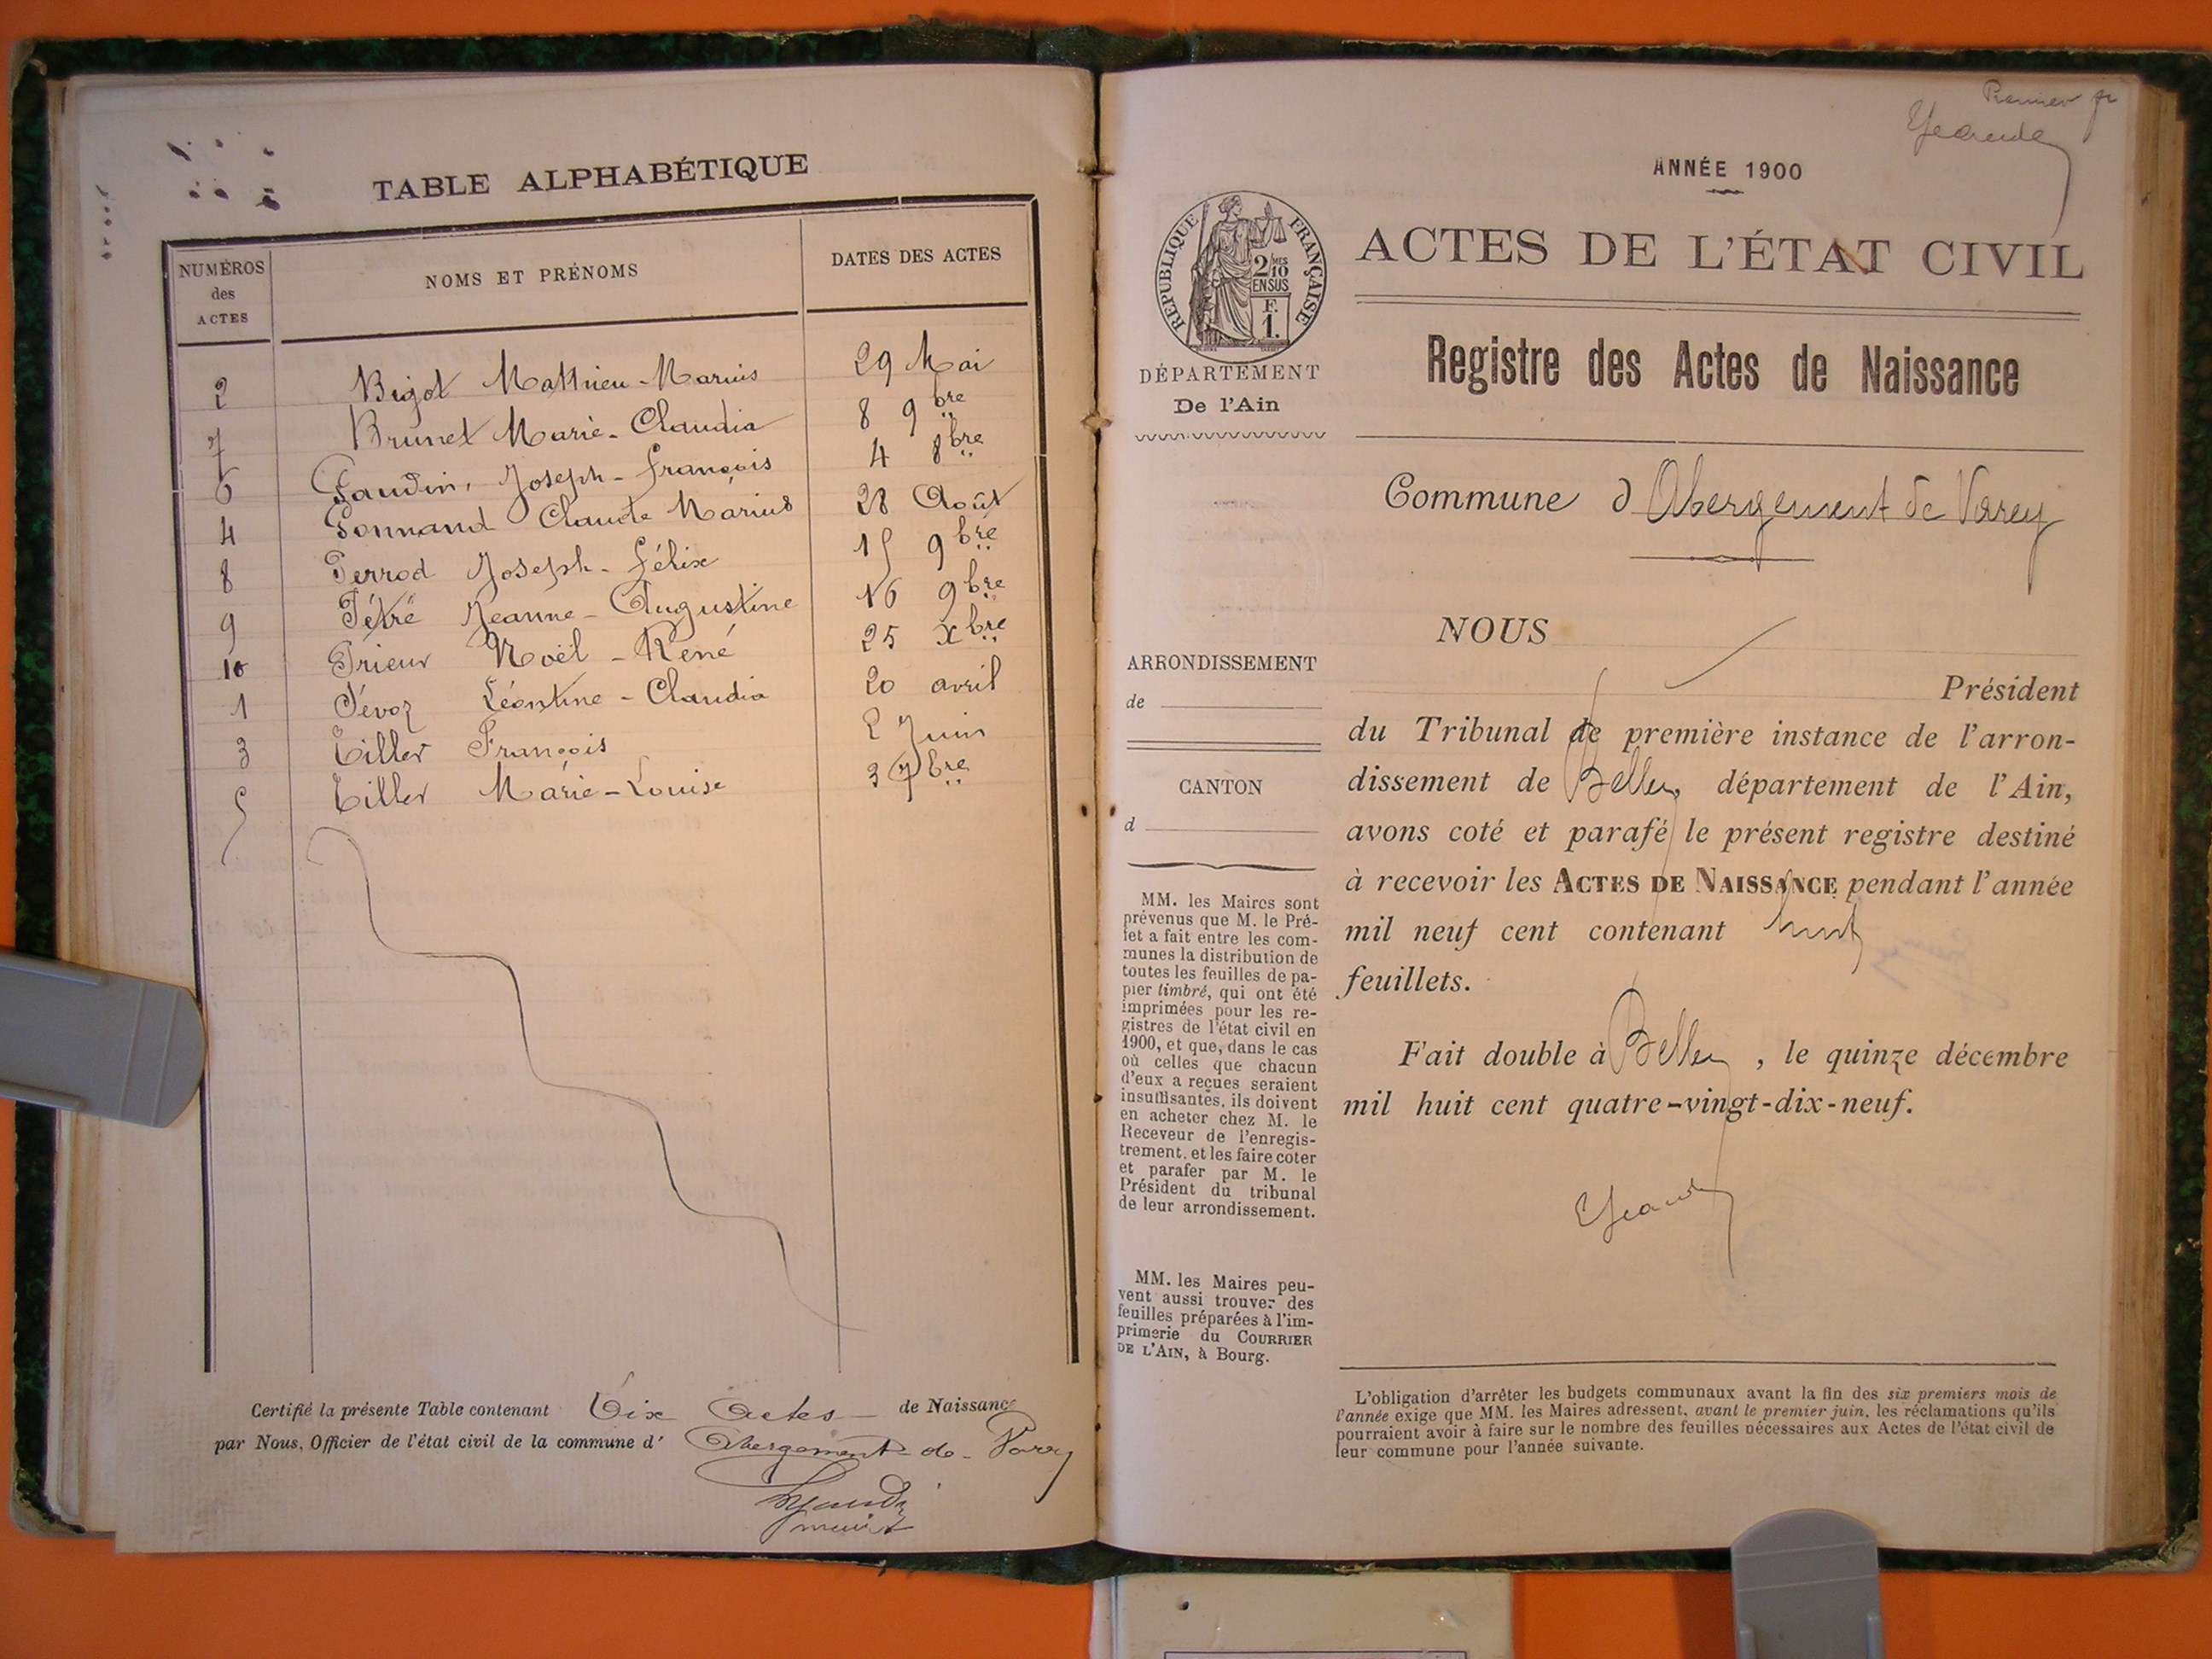 TABLE ALPHABÉTIQUE
NUMÉROS
des
ACTES
NOMS ET PRÉNOMS
DATES DES ACTES
2 Bigot Matthieu-Marius 29 Mai
7 Brunet Marie-Claudia 8 9bre
6 Gaudin, Joseph-François 4 8bre
4 Gonnand Claude Marius 28 Août
8 Perrod Joseph-Félix 15 9bre
9 Jeanne-Augustine 16 9bre
10 Prieur Noël-René 25 Xbre
1 Tévoz Léontine-Claudia 20 avril
3 Tiller François 2 Juin
5 Tiller Marie-Louise 3 7bre
Certifié la présente Table contenant Dix Actes de Naissance
par Nous, Officier de l'état civil de la commune d' Abergement-de-Varey
Premier
ANNÉE 1900
RÉPUBLIQUE FRANÇAISE
2 MES
10
EN SUS
F.
1.
DÉPARTEMENT
De l'Ain
ACTES DE L'ÉTAT CIVIL
Registre des Actes de Naissance
Commune d'Abergement de Varey
ARRONDISSEMENT
de
CANTON
d
MM. les Maires sont
prévenus que M. le Pré-
fet a fait entre les com-
munes la distribution de
toutes les feuilles de pa-
pier timbré, qui ont été
imprimées pour les re-
gistres de l'état civil en
1900, et que, dans le cas
où celles que chacun
d'eux a reçues seraient
insuffisantes, ils doivent
en acheter chez M. le
Receveur de l'enregis-
trement, et les faire coter
et parafer par M. le
Président du tribunal
de leur arrondissement.
MM. les Maires peu-
vent aussi trouver des
feuilles préparées à l'im-
primerie du COURRIER
DE L'AIN, à Bourg.
NOUS
Président
du Tribunal de première instance de l'arron-
dissement de Belley, département de l'Ain,
avons coté et parafé le présent registre destiné
à recevoir les ACTES DE NAISSANCE pendant l'année
mil neuf cent contenant huit
feuillets.
Fait double à Belley, le quinze décembre
mil huit cent quatre-vingt-dix-neuf.
L'obligation d'arrêter les budgets communaux avant la fin des six premiers mois de
l'année exige que MM. les Maires adressent, avant le premier juin, les réclamations qu'ils
pourraient avoir à faire sur le nombre des feuilles nécessaires aux Actes de l'état civil de
leur commune pour l'année suivante.